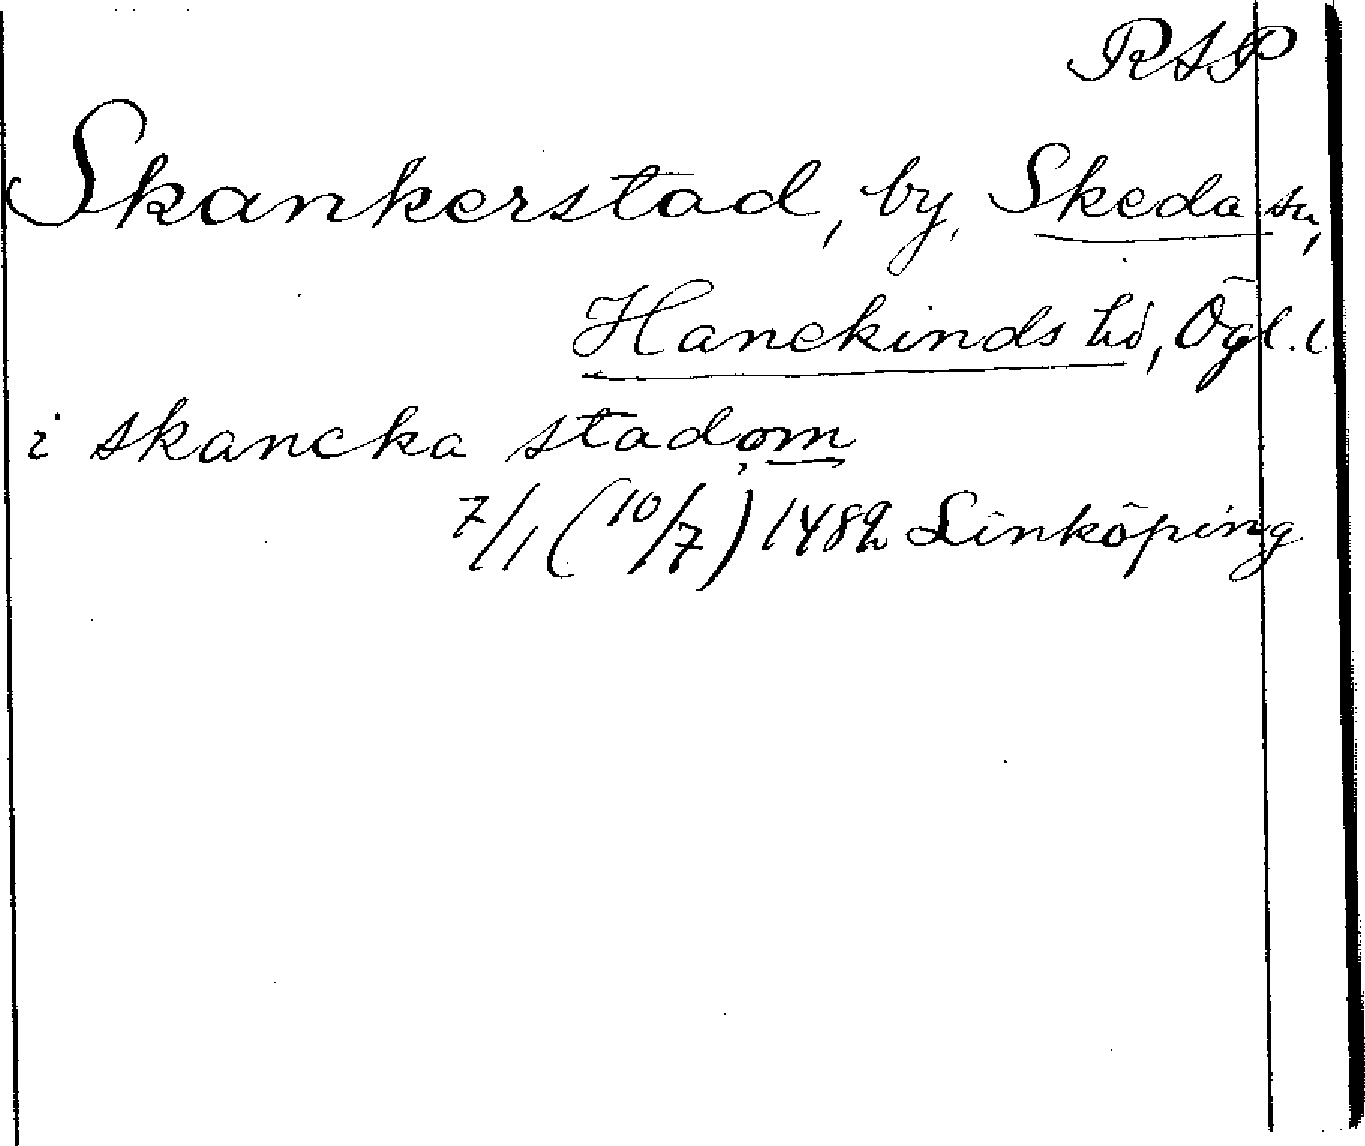 RAP
Skankerstad, by, Skeda sn,
Hanekinds hd, Ögl. l.
i skancka stadom
7/1 (10/7) 1482 Linköping